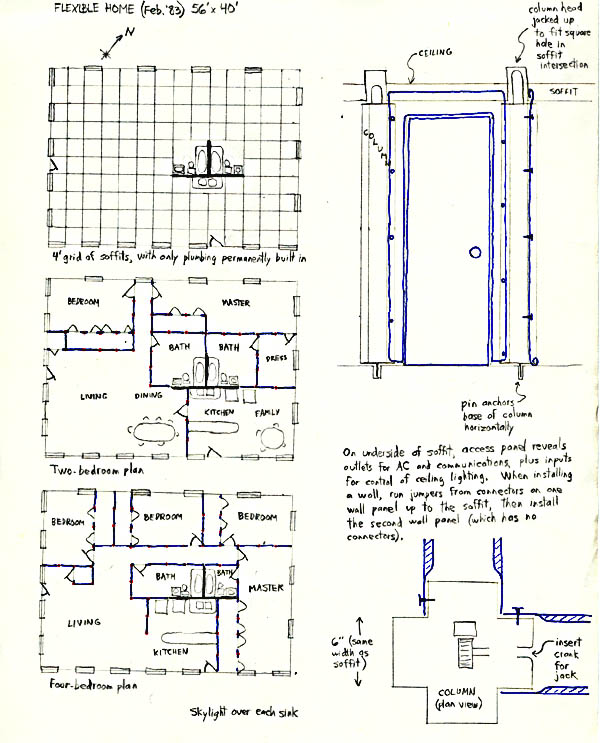 FLEXIBLE HOME (Feb. '83) 56' x 40'
N
4' grid of soffits, with only plumbing permanently built in
BEDROOM
MASTER
BATH
BATH
DRESS
LIVING
DINING
KITCHEN
FAMILY
Two-bedroom plan
BEDROOM
BEDROOM
BEDROOM
BATH
BATH
MASTER
LIVING
KITCHEN
Four-bedroom plan
Skylight over each sink
column head
jacked up
to fit square
hole in
soffit
intersection
CEILING
SOFFIT
COLUMN
pin anchors
base of column
horizontally
On underside of soffit, access panel reveals
outlets for AC and communications, plus inputs
for control of ceiling lighting. When installing
a wall, run jumpers from connectors on one
wall panel up to the soffit, then install
the second wall panel (which has no
connectors).
6" (same
width as
soffit)
insert
crank
for
jack
COLUMN
(plan view)